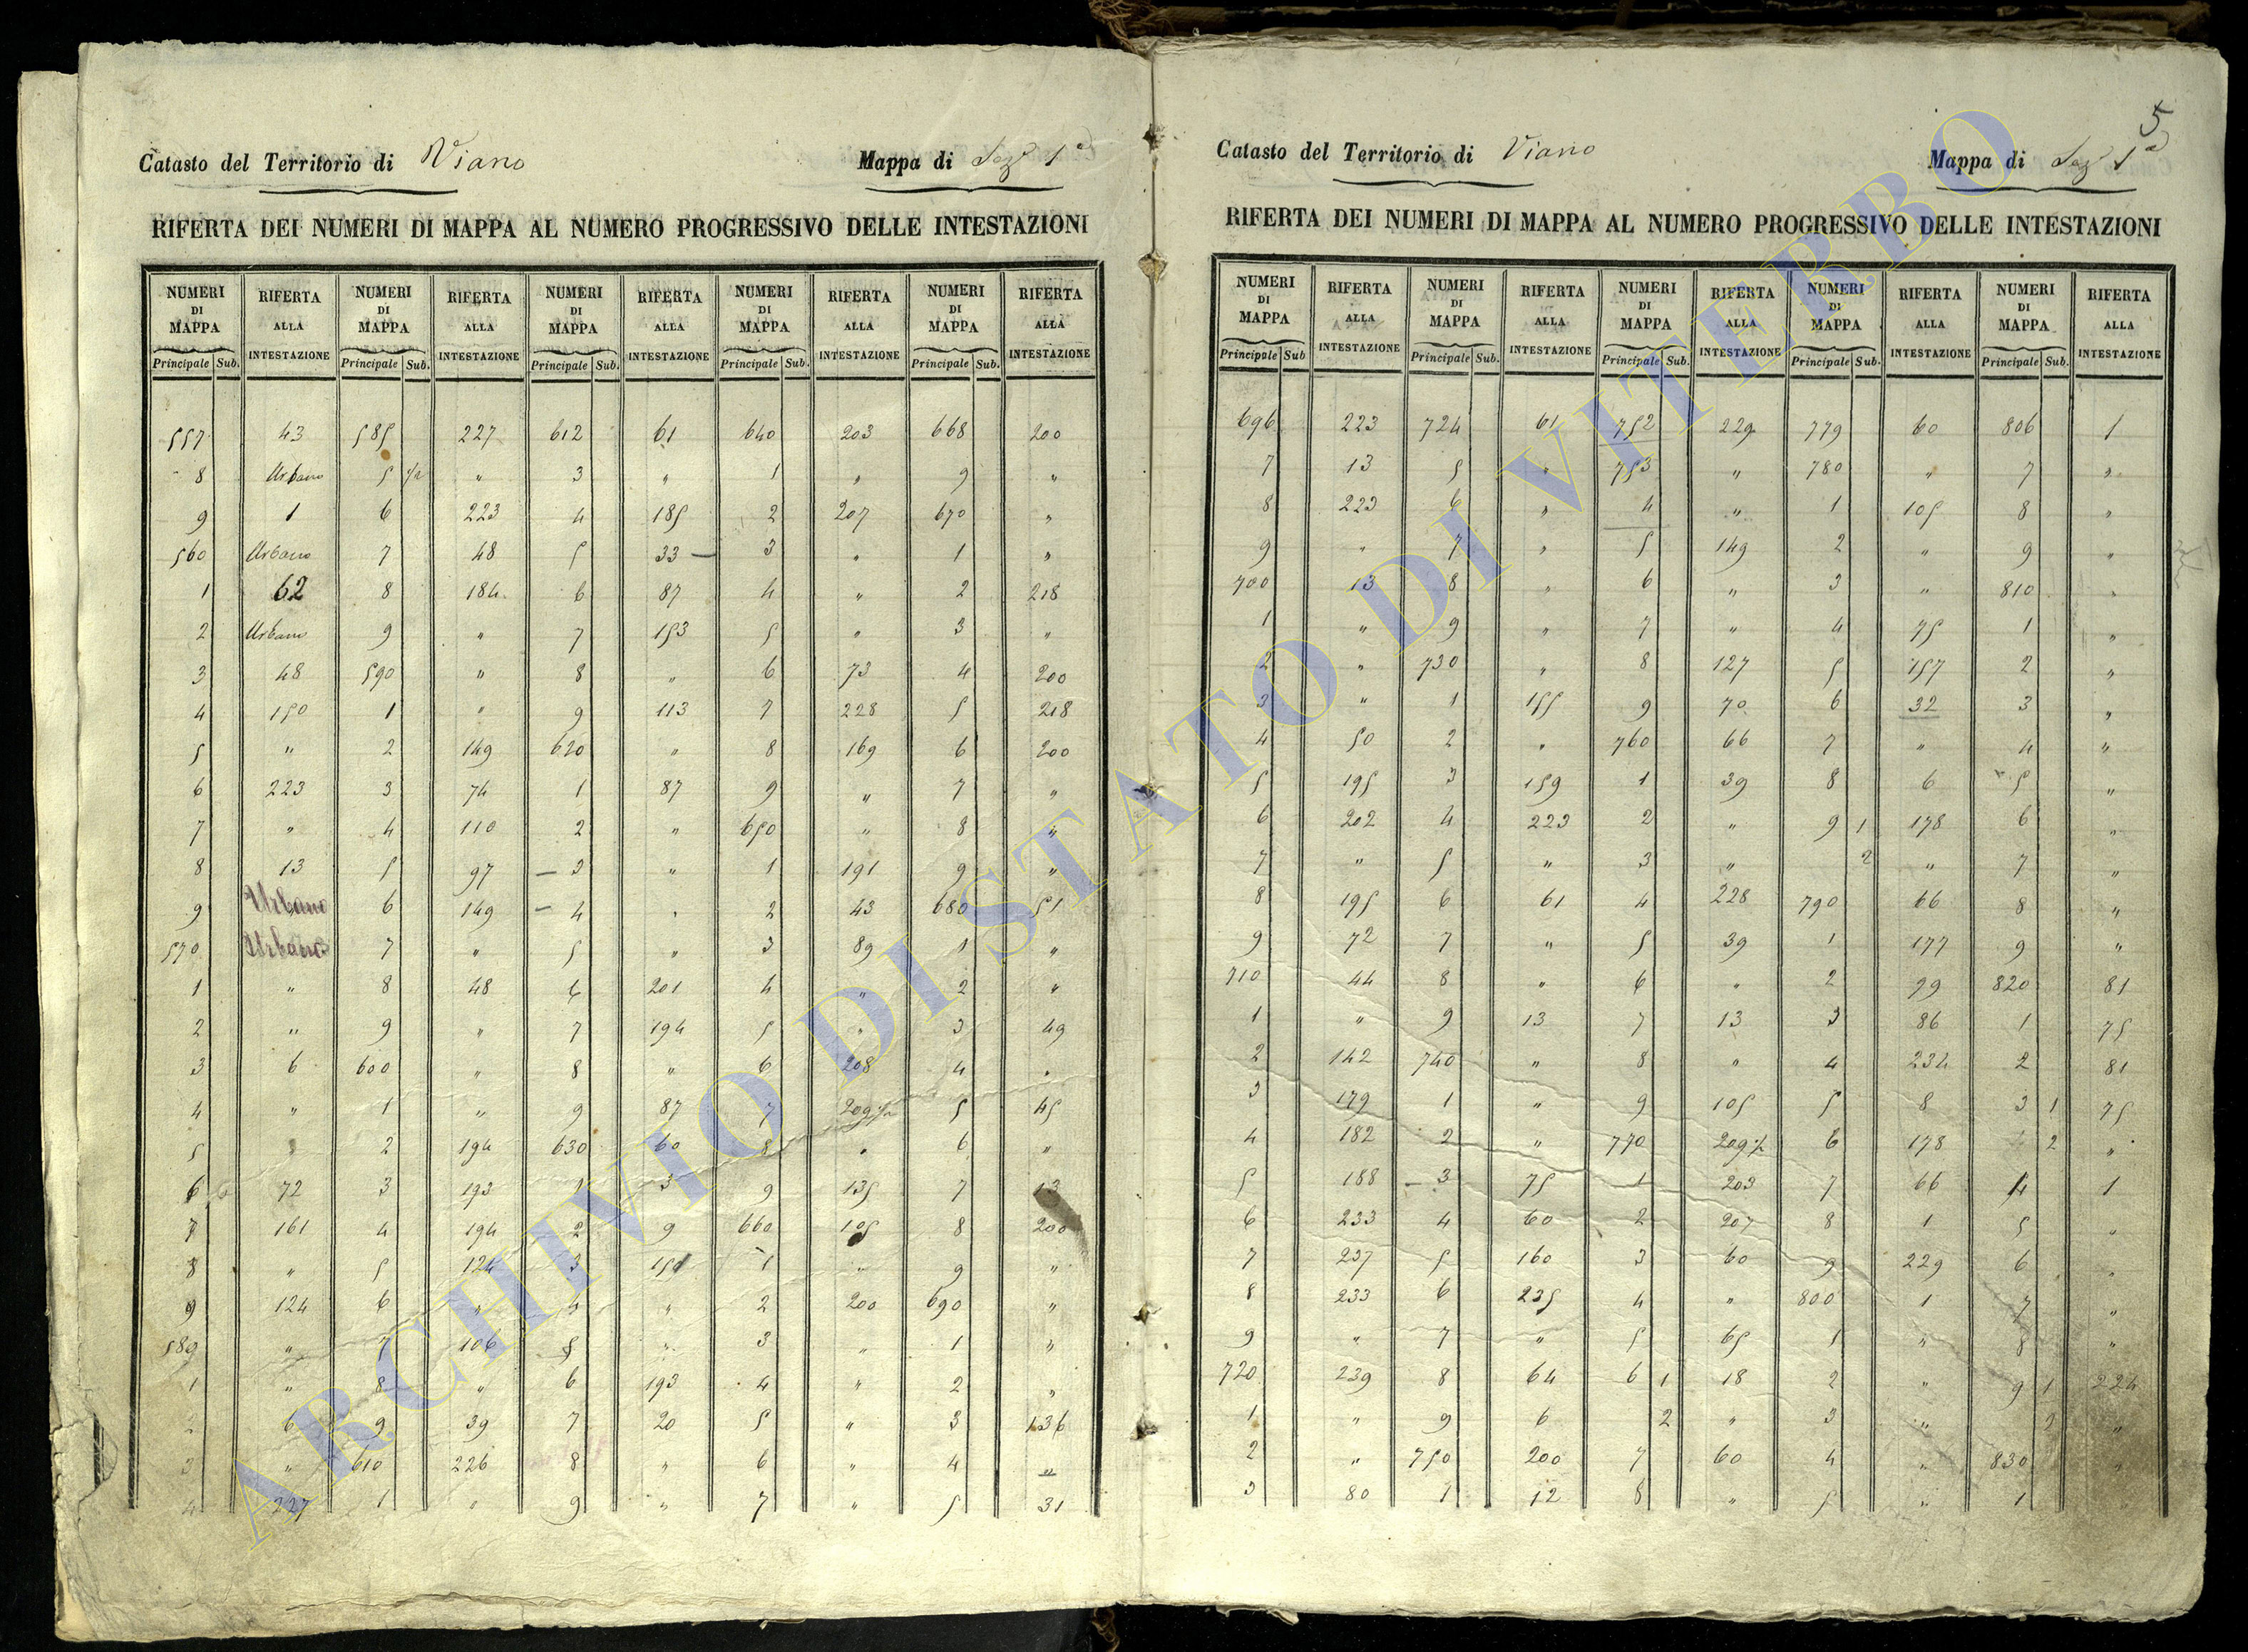 Catasto del Territorio di Viano Mappa di Sez.e 1a
RIFERTA DEI NUMERI DI MAPPA AL NUMERO PROGRESSIVO DELLE INTESTAZIONI
NUMERI RIFERTA NUMERI RIFERTA NUMERI RIFERTA NUMERI RIFERTA NUMERI RIFERTA
DI ALLA DI ALLA DI ALLA DI ALLA DI ALLA
MAPPA INTESTAZIONE MAPPA INTESTAZIONE MAPPA INTESTAZIONE MAPPA INTESTAZIONE MAPPA INTESTAZIONE
Principale Sub. Principale Sub. Principale Sub. Principale Sub. Principale Sub.
557 43 585 227 612 61 640 203 668 200
8 Urbano 5 1/2 " 3 " 1 " 9 "
9 1 6 223 4 185 2 207 670 "
560 Urbano 7 48 5 33 — 3 " 1 "
1 62 8 184 6 87 4 " 2 218
2 Urbano 9 " 7 153 5 " 3 "
3 48 590 " 8 " 6 73 4 200
4 150 1 " 9 113 7 228 5 218
5 " 2 149 620 " 8 169 6 200
6 223 3 74 1 87 9 " 7 "
7 " 4 110 2 " 650 " 8 "
8 13 5 97 — 3 " 1 191 9 "
9 Urbano 6 149 — 4 " 2 43 680 51
570 Urbano 7 " 5 " 3 89 1 "
1 " 8 48 6 201 4 " 2 "
2 " 9 " 7 194 5 " 3 49
3 6 600 " 8 " 6 208 4 "
4 " 1 " 9 87 7 209 1/2 5 45
5 " 2 194 630 60 8 " 6 "
6 72 3 193 1 3 9 135 7 13
7 161 4 194 2 9 660 105 8 200
8 " 5 124 3 151 1 " 9 "
9 124 6 " 4 " 2 200 690 "
580 " 7 106 5 " 3 " 1 "
1 " 8 " 6 193 4 " 2 "
2 6 9 39 7 20 5 " 3 136
3 " 610 226 8 " 6 " 4 "
4 227 1 " 9 " 7 " 5 31
5
Catasto del Territorio di Viano Mappa di Sez.e 1a
RIFERTA DEI NUMERI DI MAPPA AL NUMERO PROGRESSIVO DELLE INTESTAZIONI
NUMERI RIFERTA NUMERI RIFERTA NUMERI RIFERTA NUMERI RIFERTA NUMERI RIFERTA
DI ALLA DI ALLA DI ALLA DI ALLA DI ALLA
MAPPA INTESTAZIONE MAPPA INTESTAZIONE MAPPA INTESTAZIONE MAPPA INTESTAZIONE MAPPA INTESTAZIONE
Principale Sub Principale Sub. Principale Sub. Principale Sub. Principale Sub.
696 223 724 61 752 229 779 60 806 1
7 13 5 " 753 " 780 " 7 "
8 223 6 " 4 " 1 105 8 "
9 " 7 " 5 149 2 " 9 "
700 13 8 " 6 " 3 " 810 "
1 " 9 " 7 " 4 75 1 "
2 " 730 " 8 127 5 157 2 "
3 " 1 155 9 70 6 32 3 "
4 50 2 " 760 66 7 " 4 "
5 195 3 159 1 39 8 6 5 "
6 202 4 223 2 " 9 1 178 6 "
7 " 5 " 3 " 2 " 7 "
8 195 6 61 4 228 790 66 8 "
9 72 7 " 5 39 1 177 9 "
710 44 8 " 6 " 2 99 820 81
1 " 9 13 7 13 3 86 1 75
2 142 740 " 8 " 4 234 2 81
3 179 1 " 9 105 5 8 3 1 75
4 182 2 " 770 209 1/2 6 178 2 "
5 188 — 3 75 1 203 7 66 4 1
6 233 4 60 2 207 8 1 5 "
7 237 5 160 3 60 9 229 6 "
8 233 6 235 4 " 800 1 7 "
9 " 7 " 5 65 1 " 8 "
720 239 8 64 6 1 18 2 " 9 1 224
1 " 9 6 2 " 3 " 2 "
2 " 750 200 7 60 4 " 830 "
3 80 1 12 8 " 5 " 1
ARCHIVIO DI STATO DI VITERBO